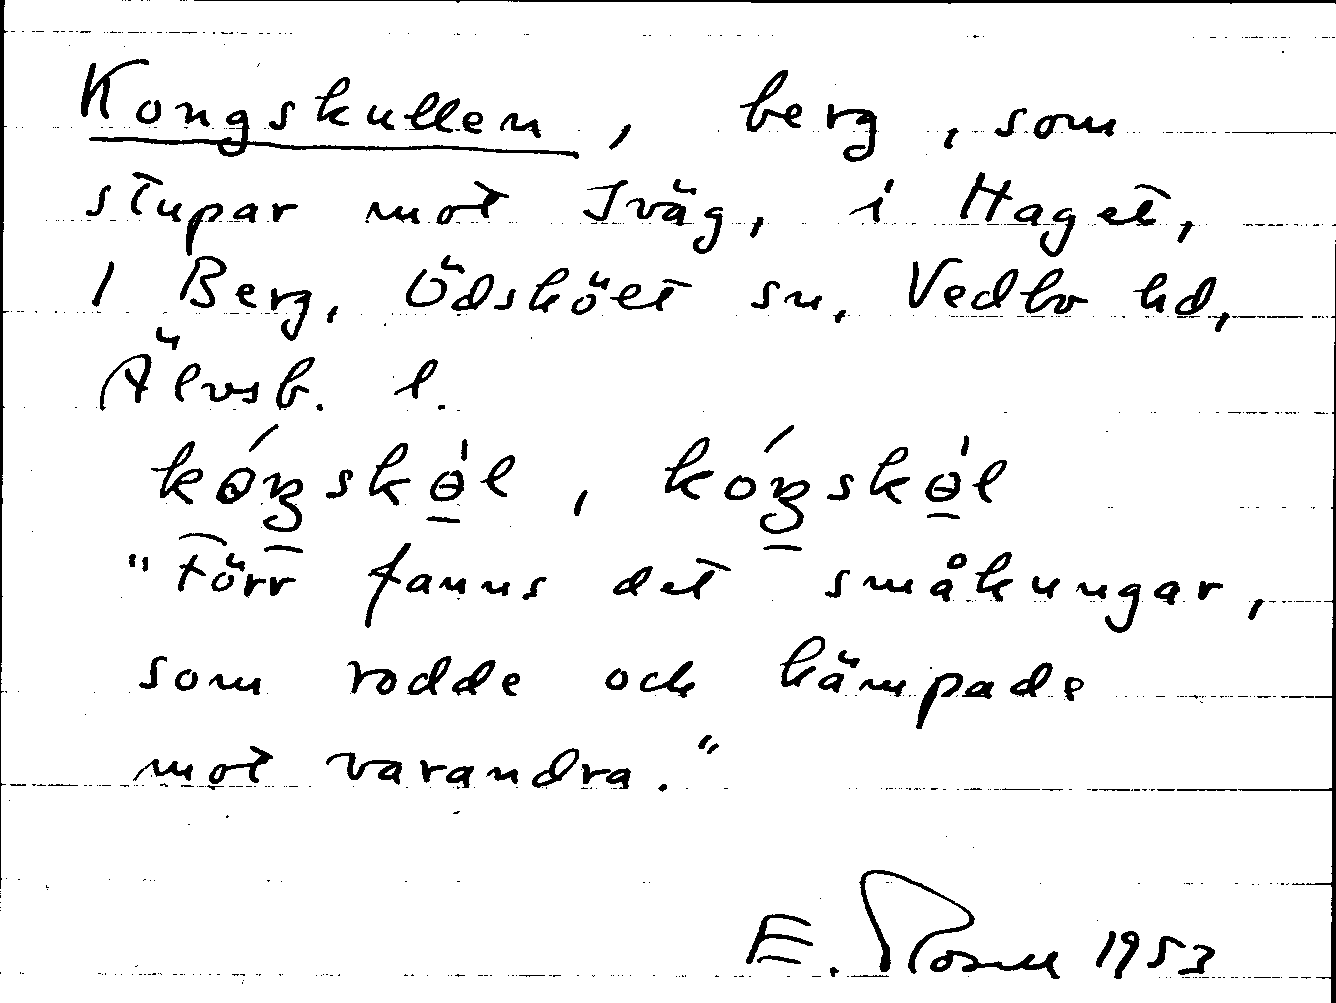 Kongskullen, berg, som
stupar mot Iväg, i Haget,
1 Berg, Ödsköet sn, Vedbo hd,
Älvsb. l.
"Förr fanns det småkungar,
som rodde och kämpade
mot varandra."
E. Rosell 1953